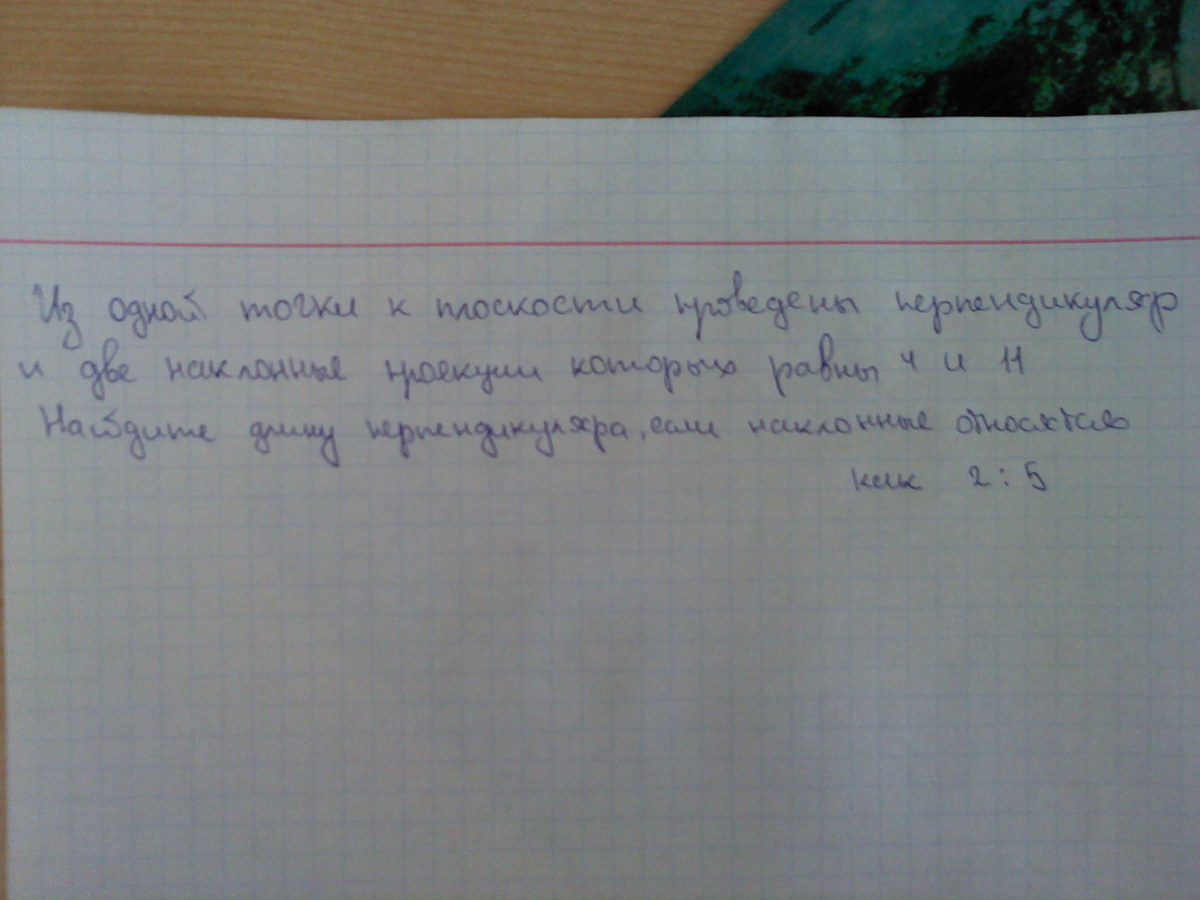 Из одной точки к плоскости проведены перпендикуляр
и две наклонные проекции которых равны 4 и 11
Найдите длину перпендикуляра, если наклонные относятся
как 2 : 5